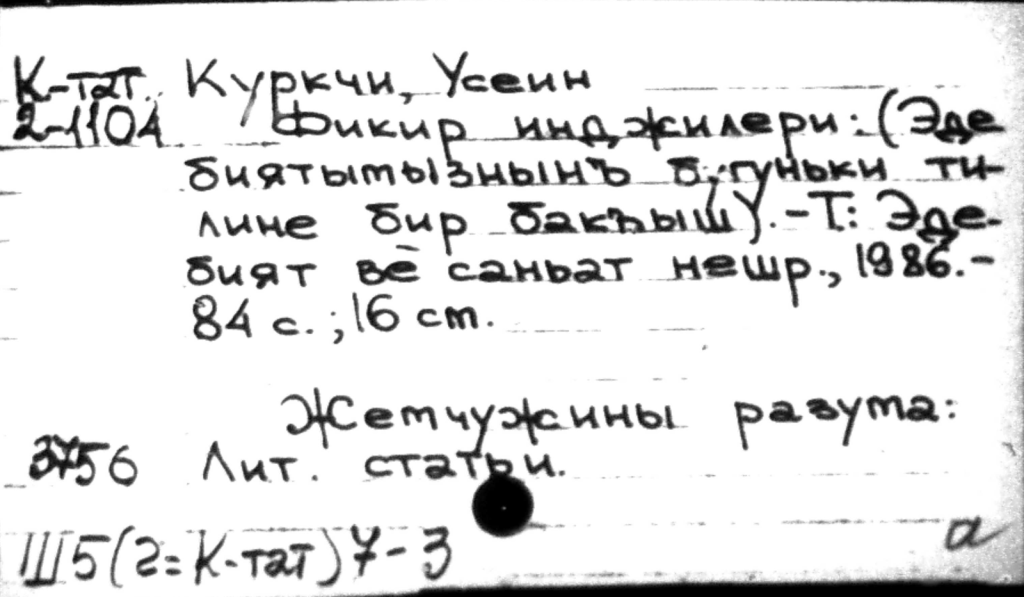 К-тат. Куркчи, Усеин
2-1104 Фикир инджилери: (Эде
биятымызнынъ бугуньки ти-
лине бир бакъыш). - Т.: Эде-
бият ве санъат нешр., 1986. -
84 с.; 16 см.
Жемчужины разума:
3756 Лит. статьи.
Ш5(2=К-тат)7-3 а